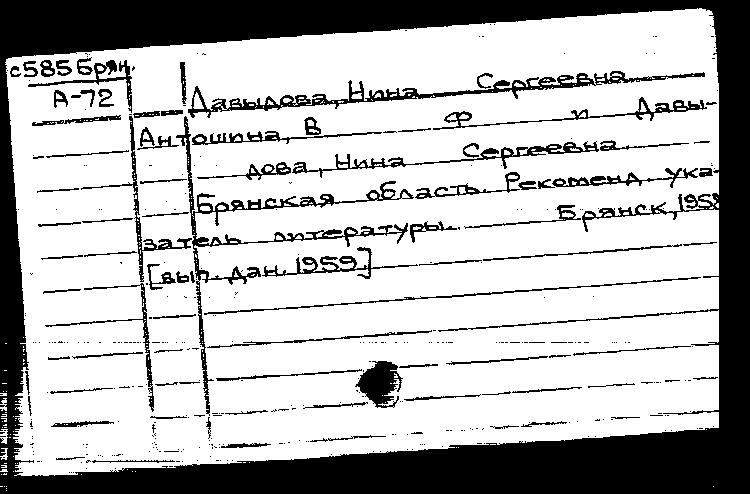 с585Брян.
А-72
Давыдова, Нина Сергеевна
Антошина, В Ф и Давы-
дова, Нина Сергеевна
Брянская область. Рекоменд. ука-
затель литературы. Брянск, 1958
[вып. дан. 1959]